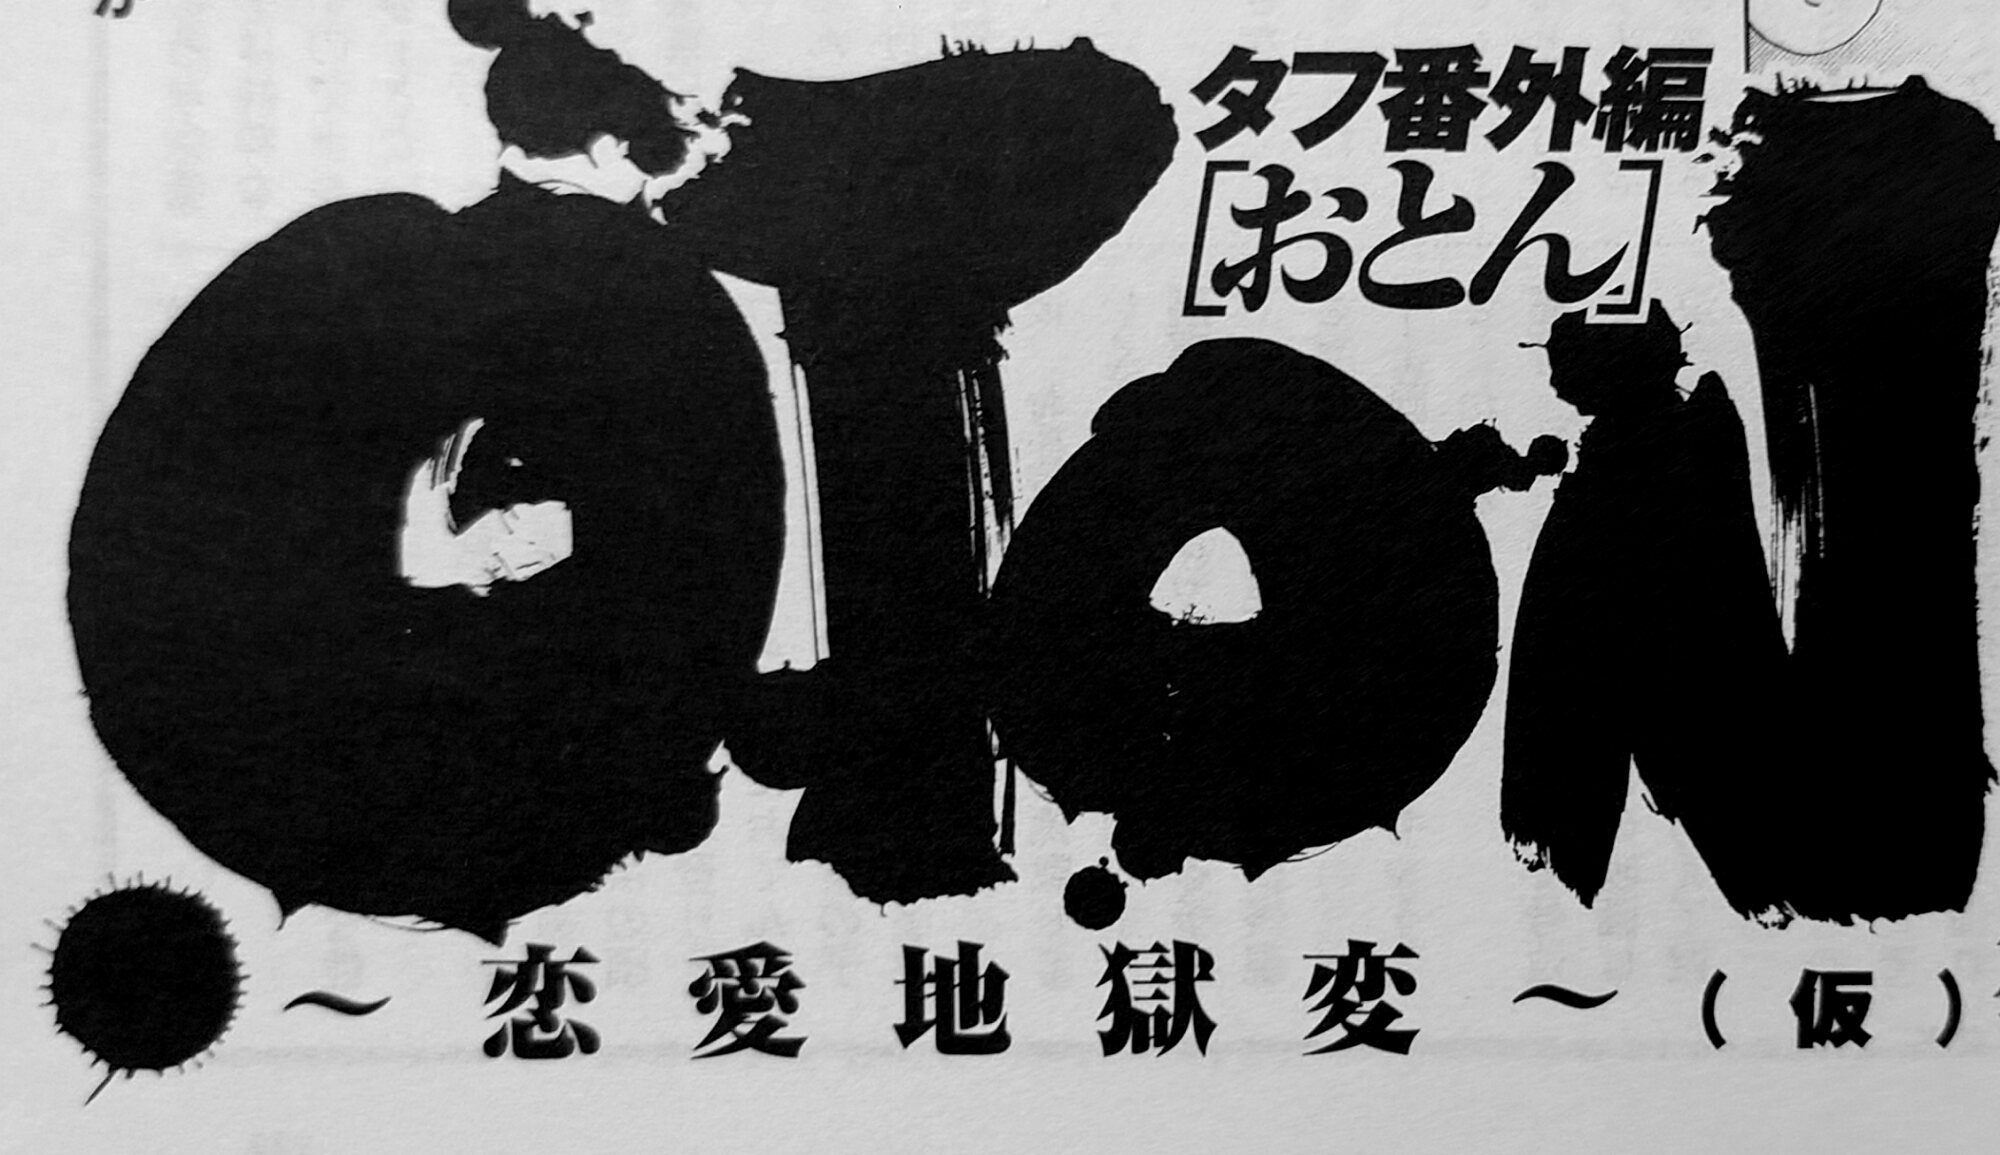 タフ番外編
[おとん]
OToN
～恋愛地獄変～(仮)